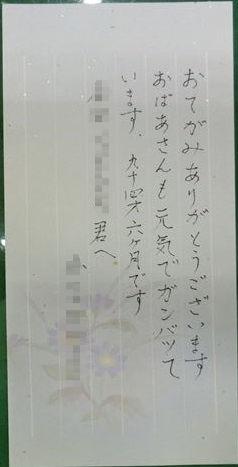 おてがみありがとうございます
おばあさんも元気でガンバッて
います、九十四才六ヶ月です
君へ、